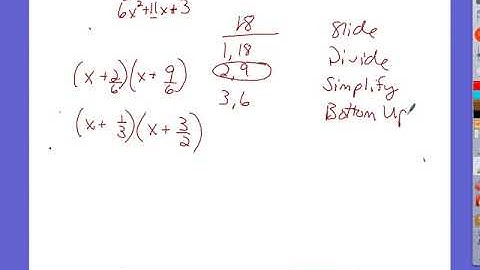 6x²+11x+3
18
1,18
2,9
3,6
(x+2/6)(x+9/6)
(x+1/3)(x+3/2)
Slide
Divide
Simplify
Bottom Up